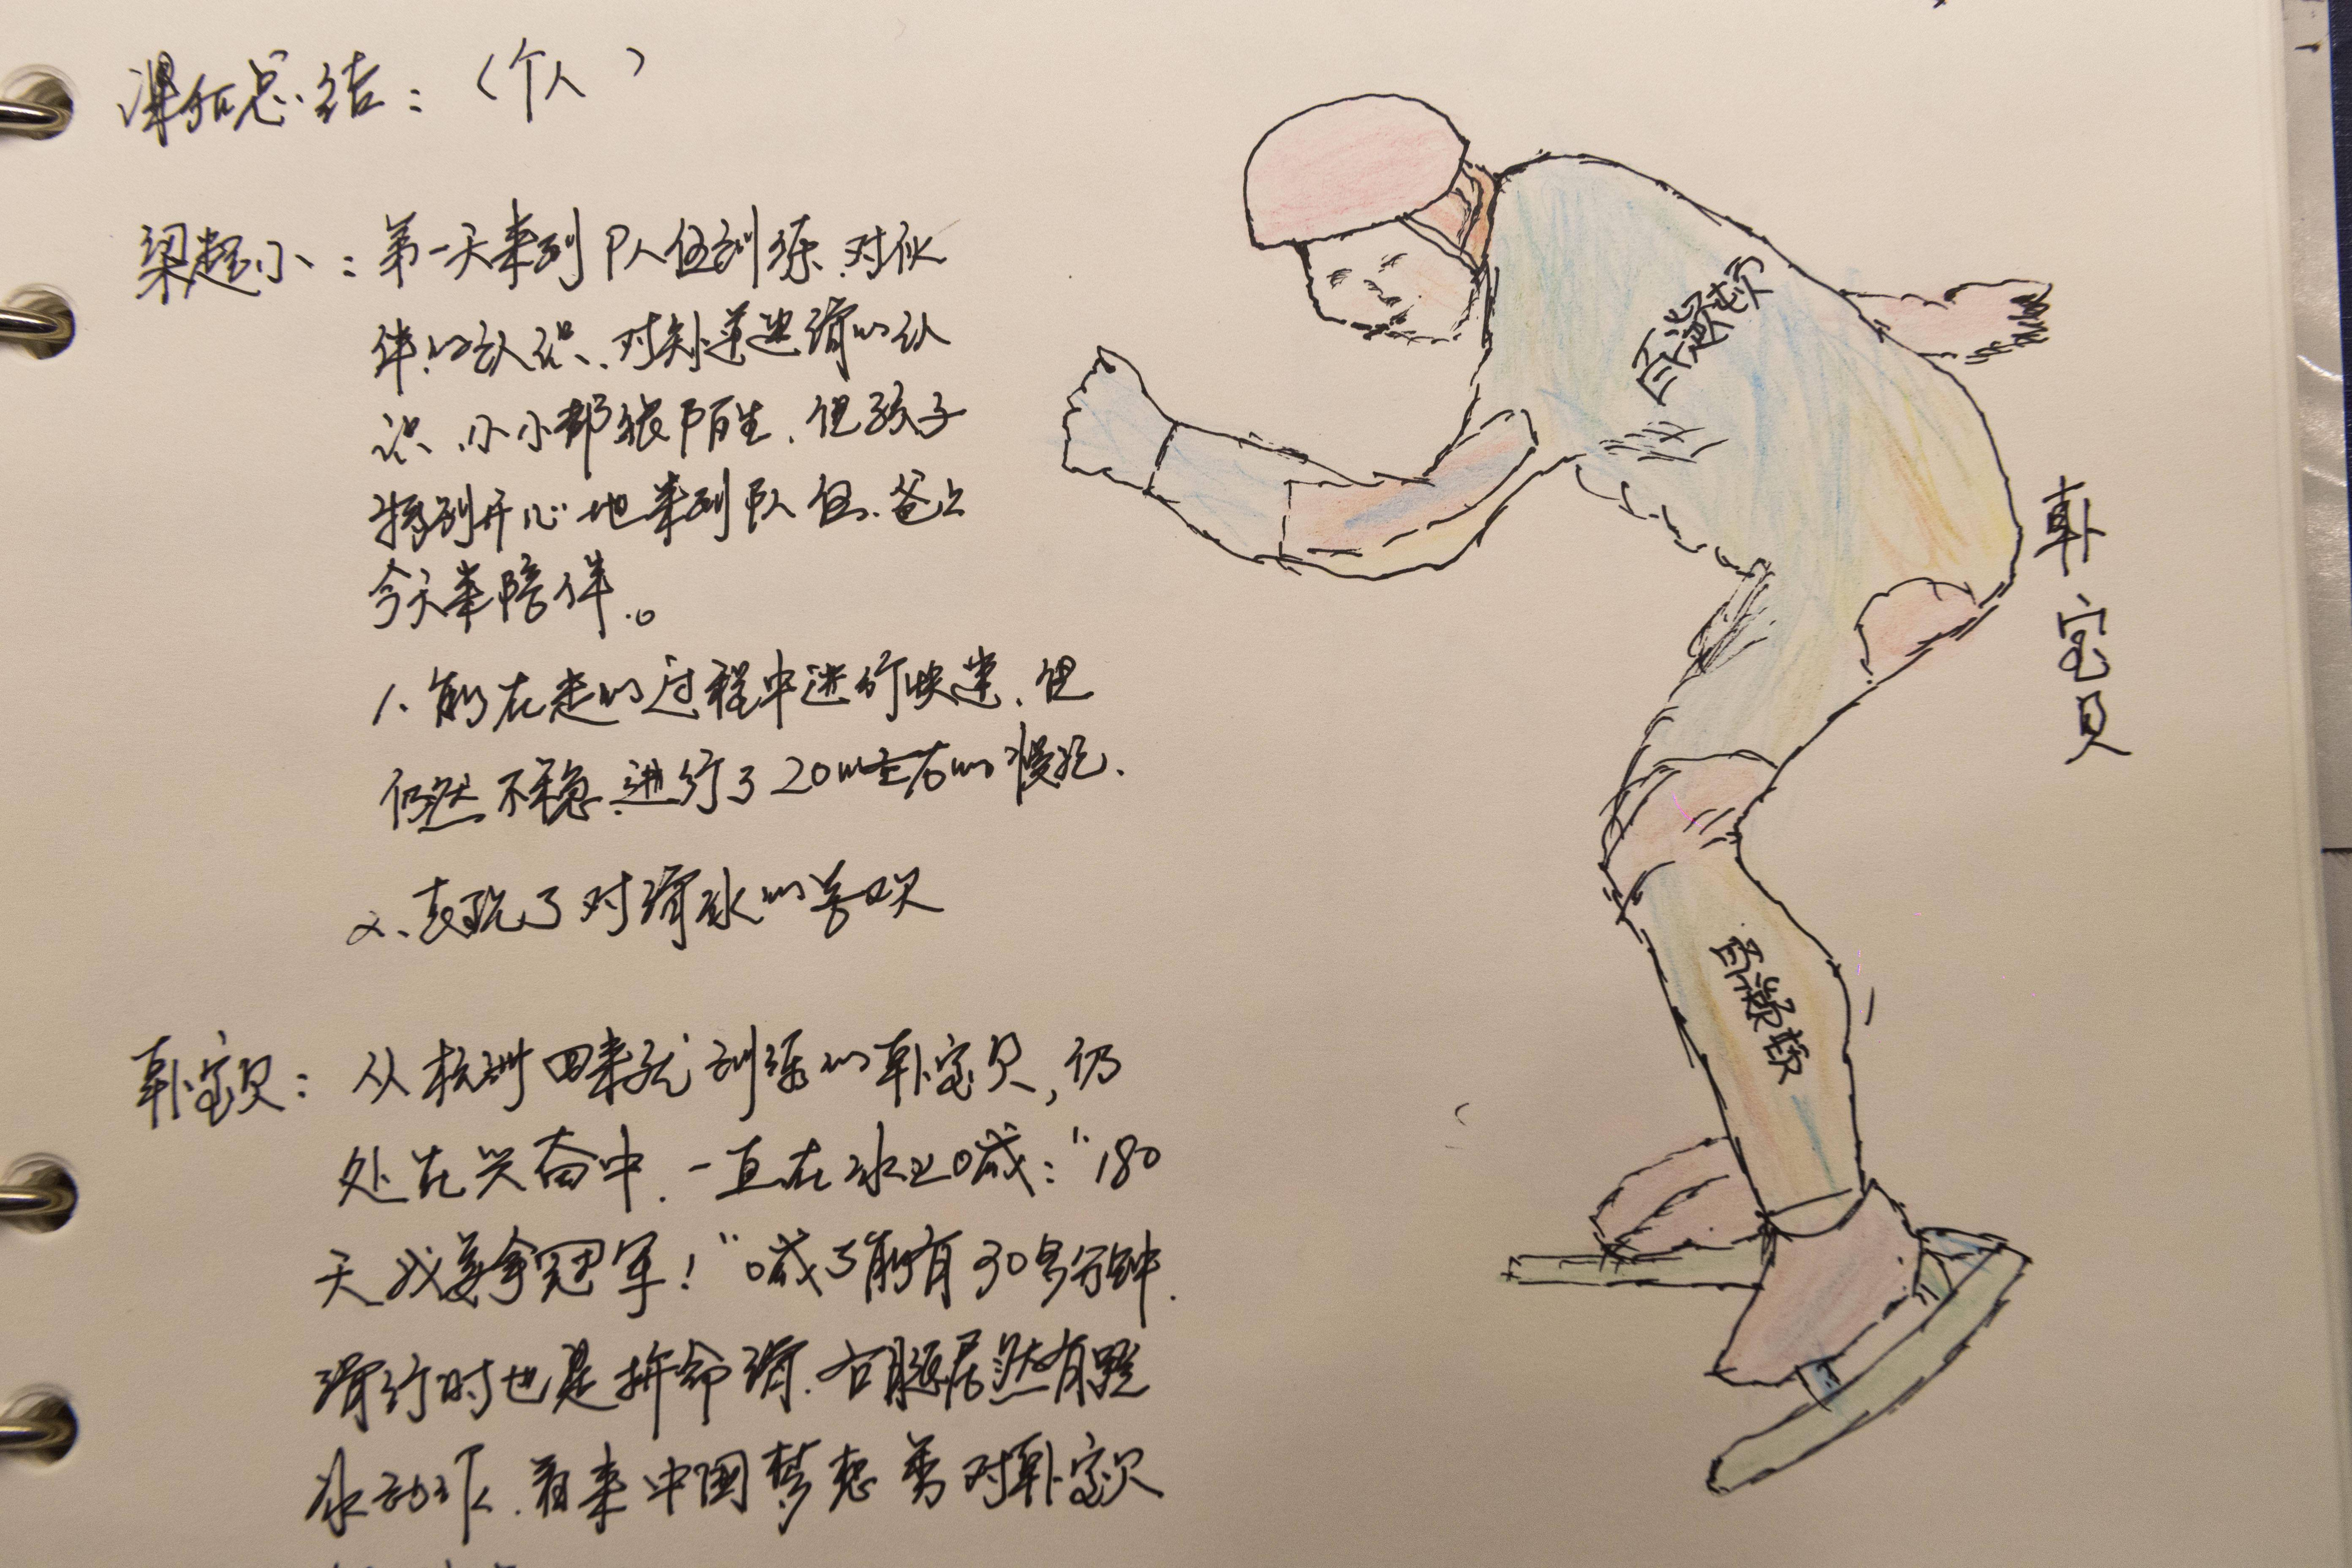 课后总结:(个人)
梁超小:第一天来到队伍训练,对伙
伴的认识、对短道速滑的认
识、小小都很陌生,但孩子
特别开心地来到队伍,爸爸
今天来陪伴。
1、能在走的过程中进行快速,但
仍然不稳,进行了20m左右的慢跑.
2、表现了对滑冰的喜欢
韩宝贝:从杭州回来就训练的韩宝贝,仍
处在兴奋中,一直在冰上喊:"180
天我要拿冠军!"喊了能有30多分钟.
滑行时也是拼命滑.右腿居然有蹬
冰动作.看来中国梦想秀对韩宝贝
韩宝贝